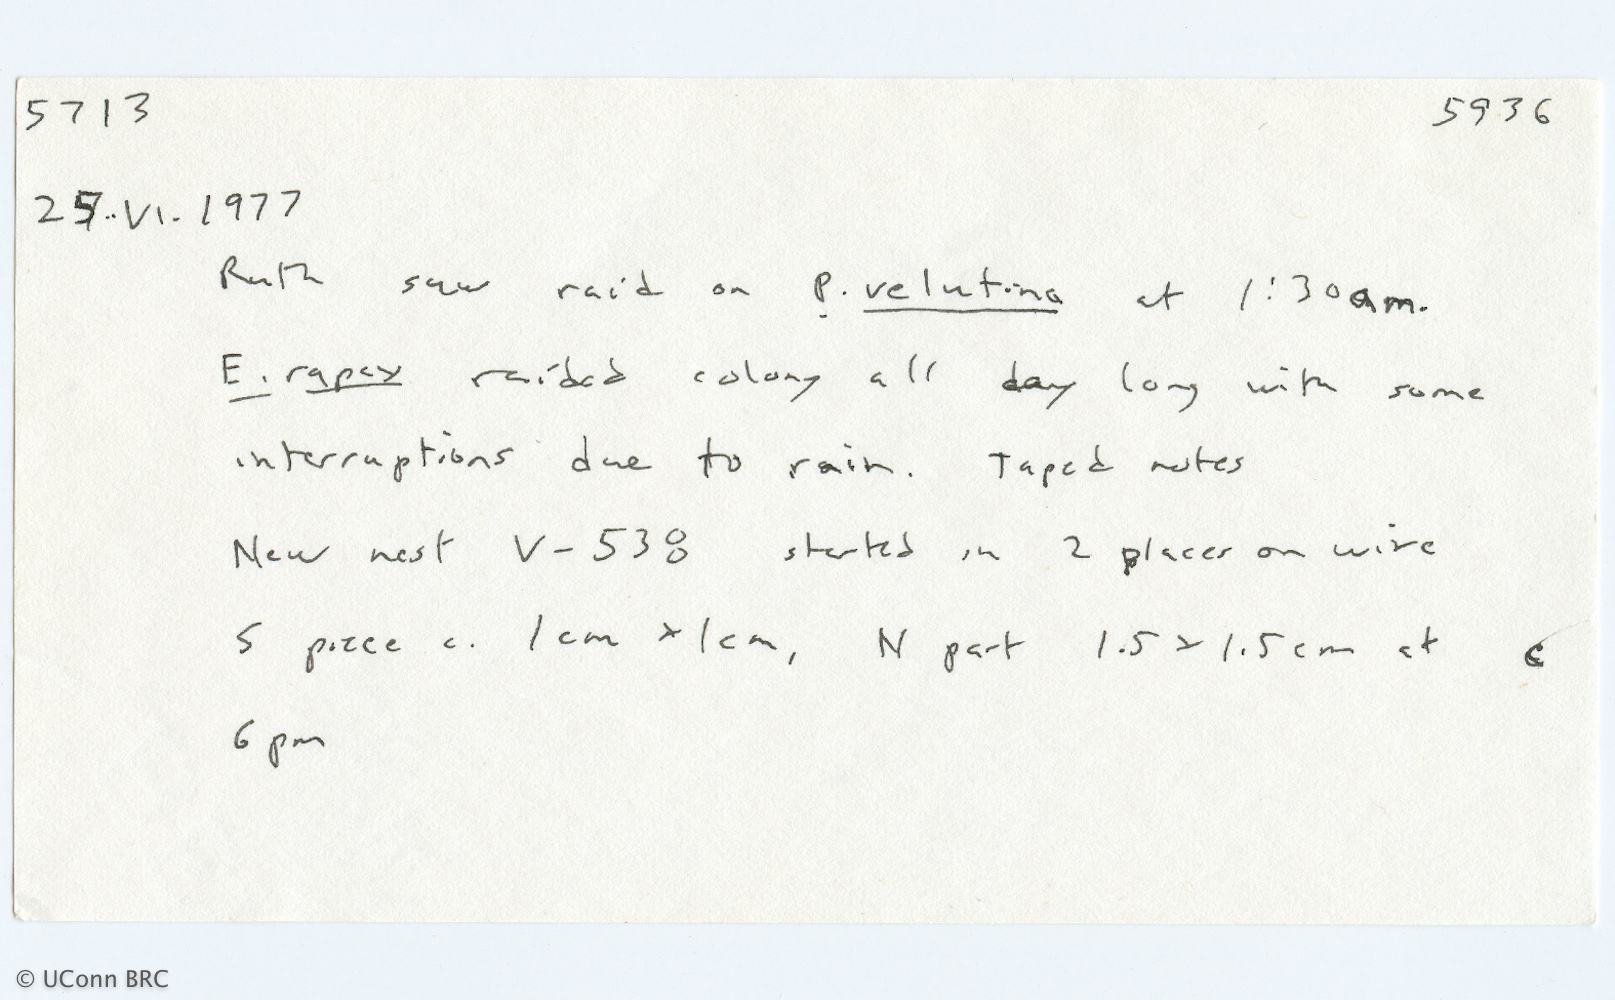 5713 5936
25.VI.1977
Ruth saw raid on P. velutina at 1:30am.
E. rapax raided colony all day long with some
interruptions due to rain. Taped notes
New nest V-538 started in 2 places on wire
S piece c. 1cm x 1cm, N part 1.5 x 1.5cm at c
6pm
© UConn BRC